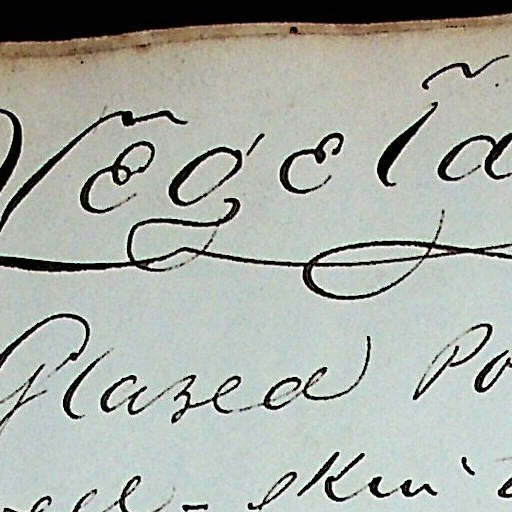 Vegeta
Glazed Po
- skin